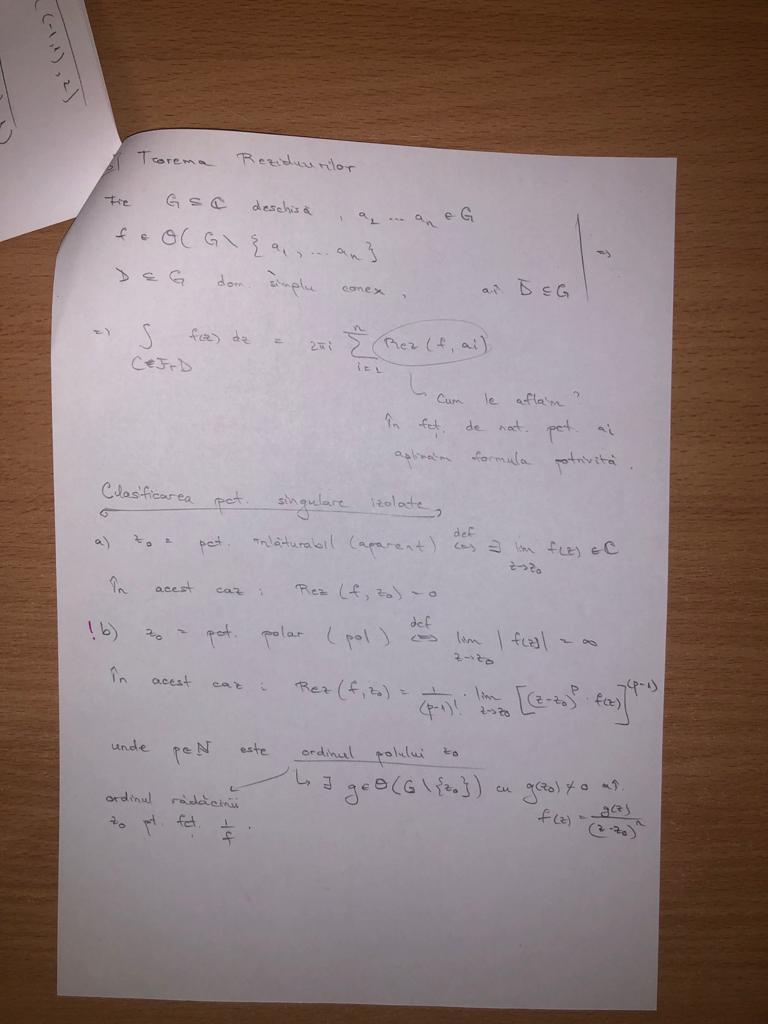 (-1,1), 2)
Teorema Reziduurilor
Fie G ⊆ ℂ deschisă, a₁ ... aₙ ∈ G
f ∈ Θ(G \ {a₁, ... aₙ} ⇒
D ⊆ G dom. simplu conex, a.î D̄ ⊆ G
⇒ ∫ f(z) dz = 2πi ∑ᵢ₌₁ⁿ Rez(f, ai)
Fr D
Cum le aflăm?
În fcț. de nat. pct. ai
aplicăm formula potrivită.
Clasificarea pct. singulare izolate
a) z₀ = pct. înlăturabil (aparent) ⇔ def ∃ lim z→z₀ f(z) ∈ ℂ
În acest caz: Rez(f, z₀) = 0
! b) z₀ = pct. polar (pol) ⇔ def lim z→z₀ |f(z)| = ∞
În acest caz: Rez(f, z₀) = 1/(p-1)! · lim z→z₀ [(z-z₀)ᵖ · f(z)]⁽ᵖ⁻¹⁾
unde p∈ℕ este ordinul polului z₀
↳ ∃ g∈Θ(G\{z₀}) cu g(z₀) ≠ 0 aî.
f(z) = g(z)/(z-z₀)ⁿ
ordinul rădăcinii
z₀ pt. fcț. 1/f.